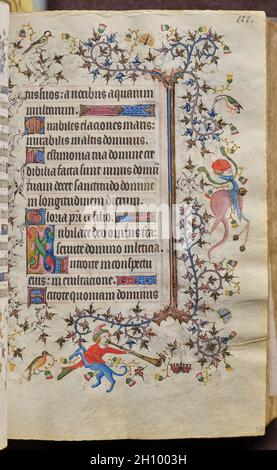 tus suos: a vocibus aquarum
multarum.
Mirabiles elaciones maris:
mirabilis in altis dominus.
Testimonia tua domine cre
dibilia facta sunt nimis domū
tuam decet sanctitudo domine
in longitudinem dierum.
Gloria pr̄i et filio.
Iubilate deo omnis terra:
servite domino in leticia.
Introite in conspectu
eius: in exultacione.
Scitote quoniam dominus
alamy
Image ID: 2H1003H
www.alamy.com